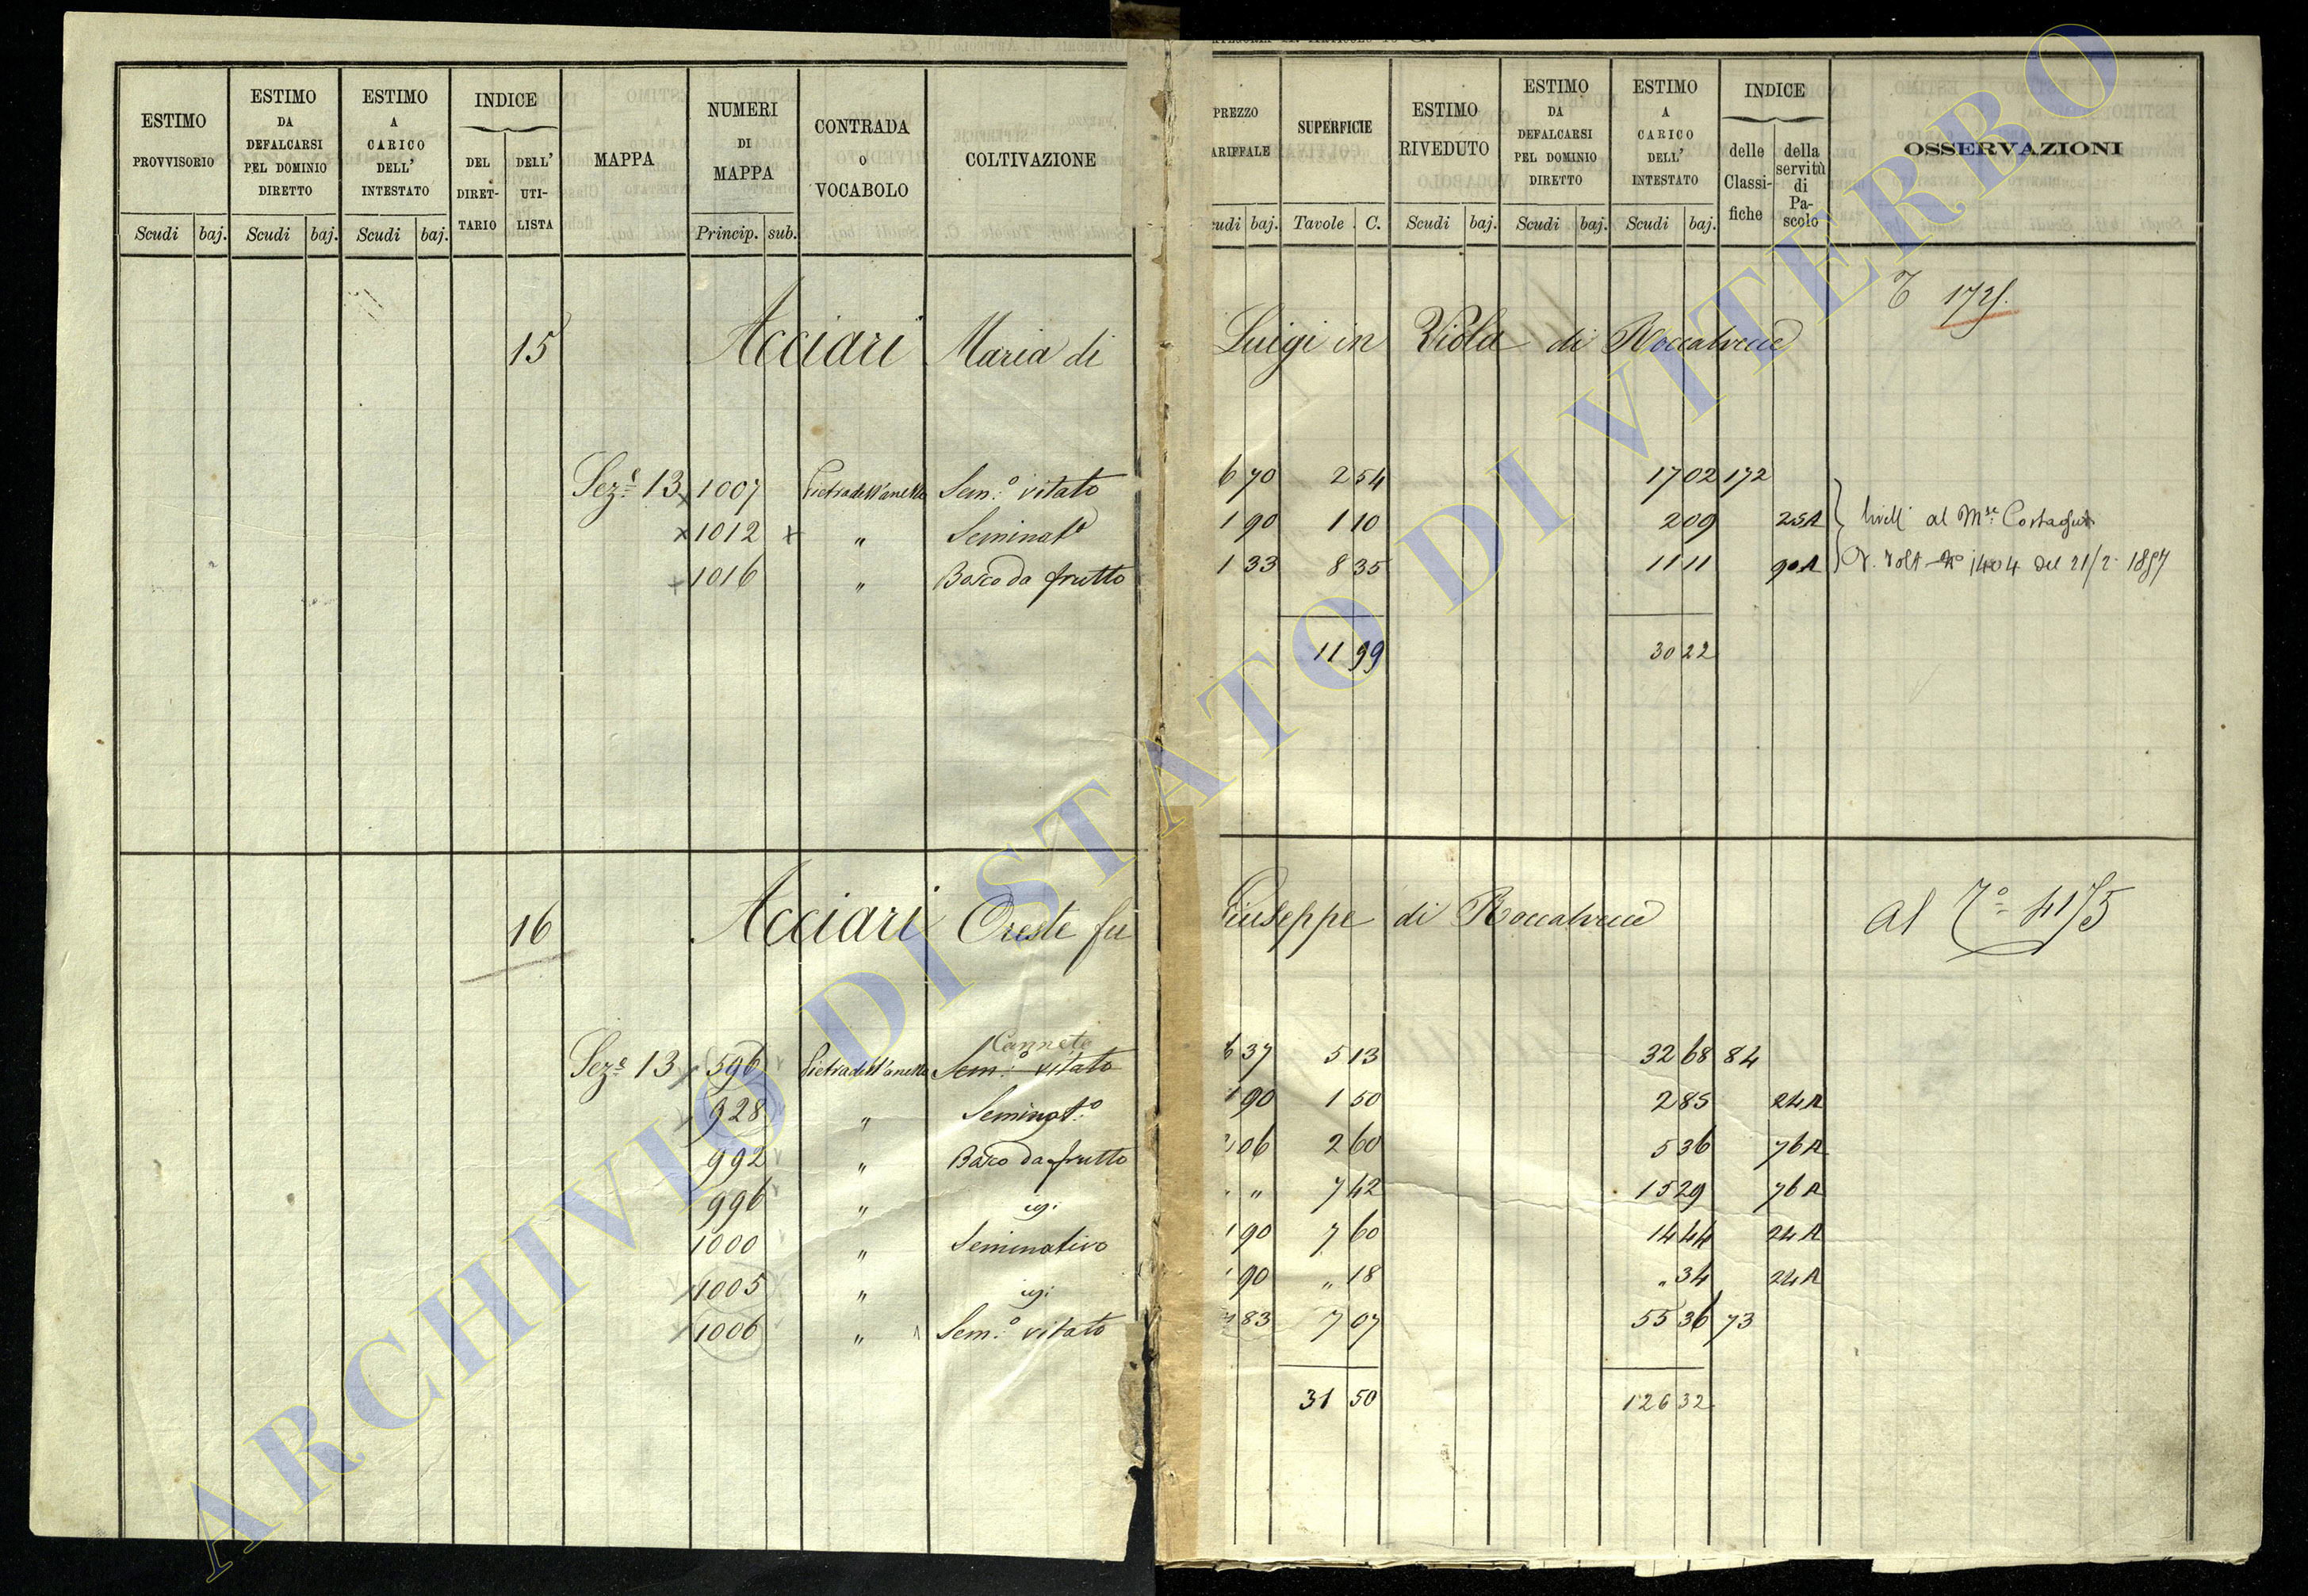 ESTIMO PROVVISORIO
Scudi baj.
ESTIMO DA DEFALCARSI PEL DOMINIO DIRETTO
Scudi baj.
ESTIMO A CARICO DELL' INTESTATO
Scudi baj.
INDICE
DEL DIRET-TARIO
DELL' UTI-LISTA
MAPPA
NUMERI DI MAPPA
Princip. sub.
CONTRADA O VOCABOLO
COLTIVAZIONE
PREZZO
ARIFFALE
udi baj.
SUPERFICIE
Tavole. C.
ESTIMO RIVEDUTO
Scudi baj.
ESTIMO DA DEFALCARSI PEL DOMINIO DIRETTO
Scudi baj.
ESTIMO A CARICO DELL' INTESTATO
Scudi baj.
INDICE
delle Classi-fiche
della servitù di Pa-scolo
OSSERVAZIONI
15 Acciari Maria di Luigi in Viola di Roccalvecce
Sez.e 13 1007 Pietradell'anello Sem.o vitato 6 70 2 54 17 02 172
1012 " Seminat.o 1 90 1 10 2 09 25A livelli al Mse.
1016 " Bosco da frutto 1 33 8 35 11 11 90A 21/2 1897
11 99 30 22
16 Acciari Oreste fu Giuseppe di Roccalvecce al 4175
Canneto
Sez.e 13 596 Pietradell'anello Sem.o vitato 6 37 5 13 32 68 84
928 " Seminat.o 1 90 1 50 2 85 24A
992 " Bosco da frutto 2 06 2 60 5 36 76A
996 " " " 7 42 15 29 76A
1000 " Seminativo 1 90 7 60 14 44 24A
1005 " 1 90 " 18 " 34 24A
1006 " Sem.o vitato 83 7 07 55 36 73
31 50 126 32
ARCHIVIO DI STATO DI VITERBO